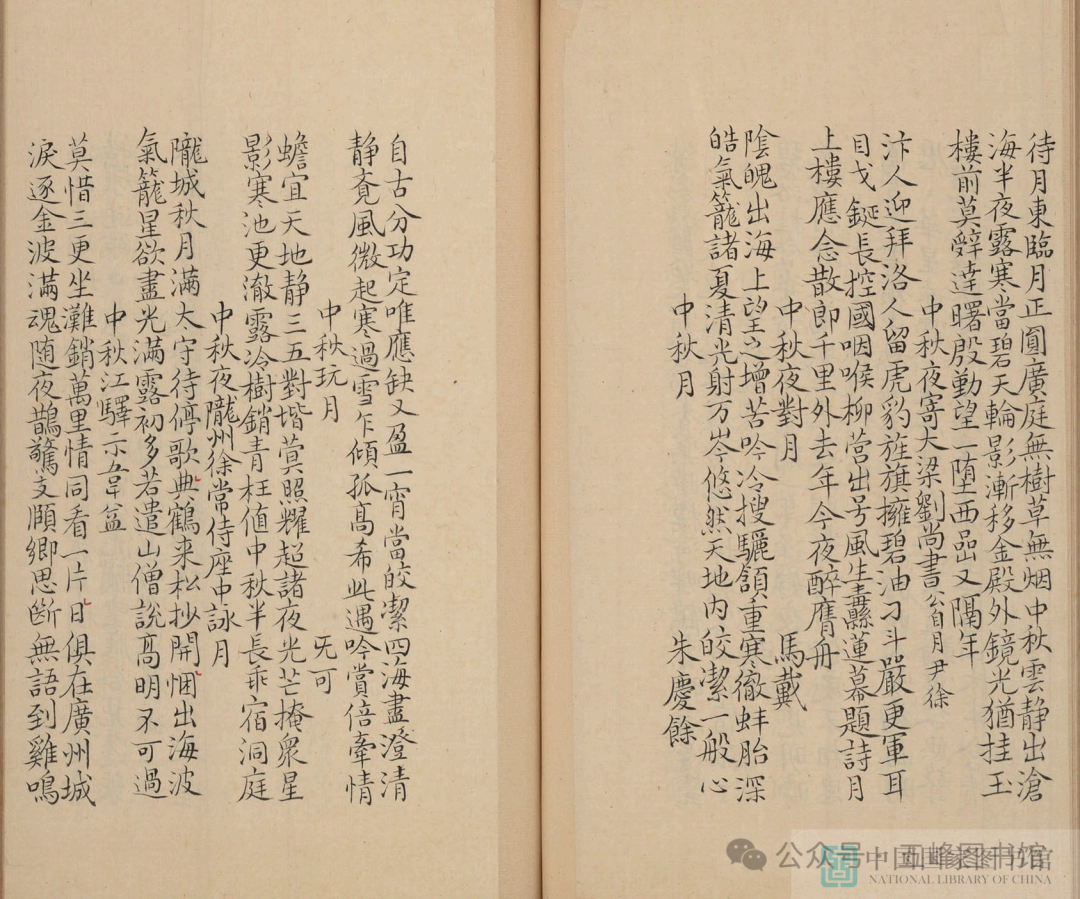 待月東臨月正圓廣庭無樹草無烟中秋雲静出滄
海半夜露寒當碧天輪影漸移金殿外鏡光猶挂玉
樓前莫辤達曙殷勤望一墮西嵒又隔年
中秋夜寄大梁劉尚書 公自月尹徐
汴人迎拜洛人留虎豹旌旗擁碧油刁斗嚴更軍耳
目戈鋋長控國咽喉柳營出号風生纛蓮幕題詩月
上樓應念散郎千里外去年今夜醉膺舟
中秋夜對月 馬戴
陰魄出海上望之增苦吟冷搜驪頷重寒徹蚌胎深
皓氣籠諸夏清光射万岑悠然天地内皎潔一般心
中秋月 朱慶餘
自古分功定唯應缺又盈一宵當皎潔四海盡澄清
静覔風微起寒過雪乍傾孤高希此遇吟賞倍牽情
中秋玩月 无可
蟾宜天地静三五對堦蓂照耀超諸夜光芒掩衆星
影寒池更澈露冷樹銷青枉值中秋半長乖宿洞庭
中秋夜隴州徐常侍座中詠月
隴城秋月滿大守待停歌典鶴来松抄開悃出海波
氣籠星欲盡光滿露初多若遣山僧說高明不可過
中秋江驛示韋益
莫惜三更坐灘銷萬里情同看一片日俱在廣州城
淚逐金波滿魂随夜鵲驚支頤鄉思斷無語到雞鳴
公众号·西峰图书馆
中国国家图书馆
NATIONAL LIBRARY OF CHINA